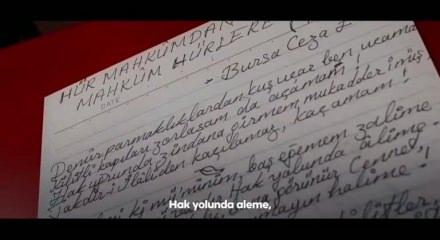 HÜR MAHKÛMDAN
MAHKÛM HÜRLERE
- Bursa Ceza E
DATE
Demir parmaklıklardan kuş uçar ben uçamam
kilitli kapıları zorlasam da açamam!
Hak yolunda zindana girmem mukaddermiş,
Takdir-i İlâhîden kaçılamaz, kaçamam!
ki mü'minim, baş eğmem zalime
Hak yolunda âlime.
görünür Cennet,
halime!
Hak yolunda aleme,